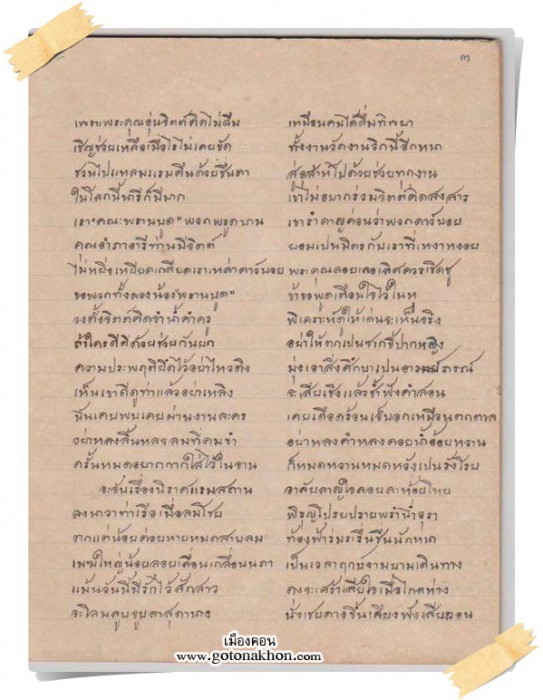 ๓
เพราะพระคุณอุ่นจิตต์คิดไม่ลืม เหมือนคนได้ดื่มทิพยา
เชิญช่วยเหลือเมื่อไรไม่เคยขัด ทั้งงานวัดงานวิกนี้อีกหนา
ชวนไปแหลมแรมคืนด้วยชื่นตา ส่อสล้าไปด้วยช่วยทุกงาน
ในโลกนี้นารีก็มีมาก เขาไม่อยากร่วมจิตต์คิดสงสาร
เรา"คณะพรานบูด"พวกพรูดบาน เขารำคาญค่อนว่าพวกดาวบอย
คุณอำภาอารีท่านมีจิตต์ ยอมเป็นมิตรกับเราที่เหงาหงอย
ไม่หยิ่งเหยียดเกลียดเราเหล่าดาวบอย พระคุณลอยเลอเลิศควรเชิดชู
ขอพวกทั้งผองน้อง"พรานบูด" ข้าขอพูดเตือนใจไว้ในหู
จงตั้งจิตต์คิดจำน้ำคำครู พิเคราะห์ดูให้เด่นจะเห็นจริง
ถ้าใครดีดีด้วยช่วยกันยก อย่าให้ตกเป็นซากขี้ปากหญิง
ความประพฤติยึดไว้อย่าไหวติง มุ่งเอาสิ่งศึกษาเป็นอาภรณ์
เห็นเขาดีดูท่าแล้วอย่าเหลิง จะเสียเชิงแล้วซ้ำฟังคำสอน
นั้นเคยพบเคยผ่านงานละคร เคยเดือดร้อนเจ็บอกเหมือนตกตาล
อย่าหลงลิ้นหลงลมที่คมขำ อย่าหลงคำหลงคอยน้ำอ้อยหวาน
ครั้นหมดอยากกากใส่ไว้ในจาน ก็หมดหวานหมดหวังเป็นรังโรย
จะจับเรื่องนิราศแรมสถาน อาลัยลาญใจคอยละห้อยโหย
ลงนาวาท่าเรือเมื่อลมโชย พิรุณโปรยปรายพรำน่ำอุรา
จากแต่น้อยค่อยหายหมดสายลม ท้องฟ้าร่มระรื่นชื่นนักหนา
เมฆใหญ่น้อยลอยเลื่อนเกลื่อนนภา เป็นเวลาฤกษ์งามยามเดินทาง
แม้นวันนี้มีรักไว้สักสาว คงจะเศร้าเสียใจเมื่อไกลห่าง
จะโลมลูบจูบลาสุดานาง นั่งเชยคางชิ้นเคียงฟังเสียงถอน
เมืองคอน
www.gotonakhon.com